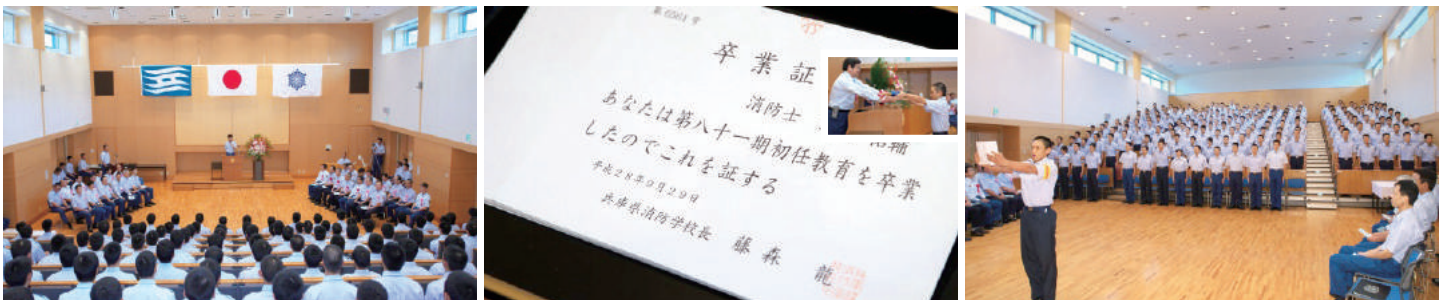 第0561号
卒業証
消防士
祐輔
あなたは第八十一期初任教育を卒業
したのでこれを証する
平成28年9月29日
兵庫県消防学校長 藤森 龍